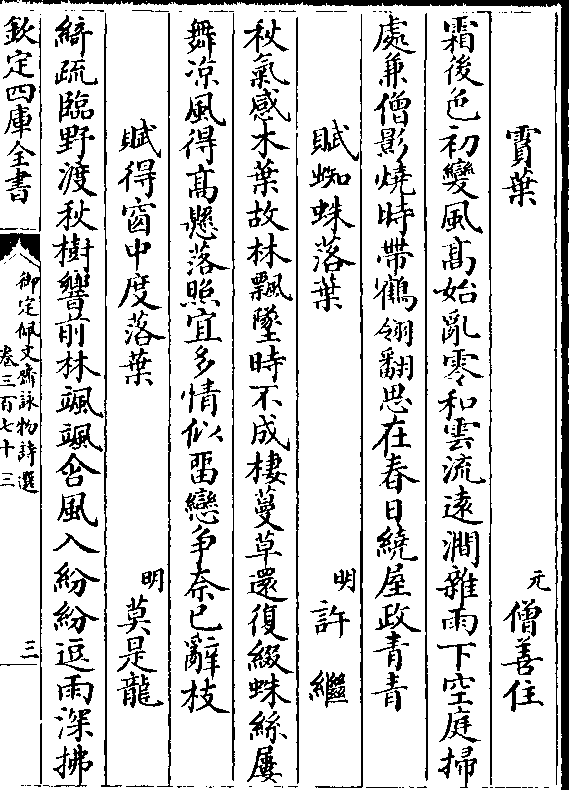 霣葉
元 僧善住
霜後色初變風髙始亂零和雲流逺澗雜雨下空庭掃
處兼僧影燒時帶鶴翎翻思在春日繞屋政青青
賦蜘蛛落葉
明 許繼
秋氣感木葉故林飄墜時不成棲蔓草還復綴蛛絲屢
舞凉風得髙懸落照宜多情似畱戀爭奈已辭枝
賦得窗中度落葉
明 莫是龍
綺疏臨野渡秋樹響前林颯颯含風入紛紛逗雨深拂
欽定四庫全書
御定佩文齋詠物詩選
卷三百七十三
三